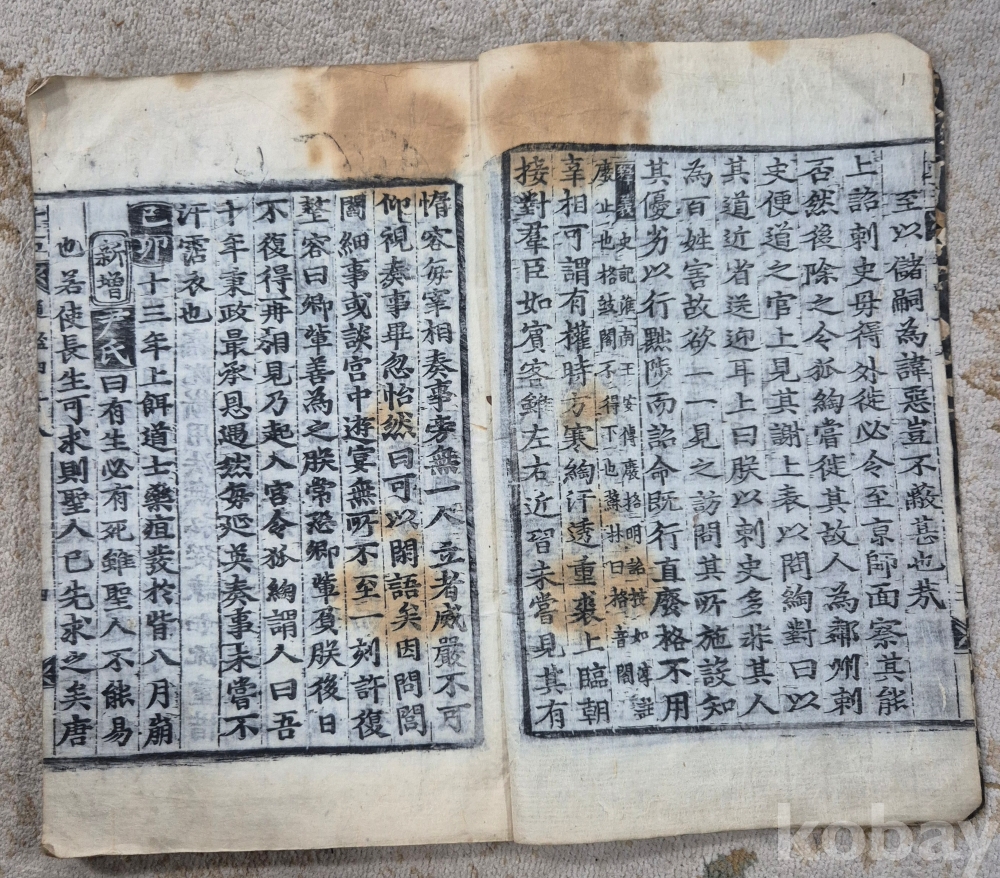 至以儲嗣為諱惡豈不蔽甚也㦲
上詔刺史毋得外徙必令至京師面察其能
否然後除之令狐綯嘗徙其故人為鄰州刺
史便道之官上見其謝上表以問綯對曰以
其道近省送迎耳上曰朕以刺史多非其人
為百姓害故欲一一見之訪問其所施設知
其優劣以行黜陟而詔命既行直廢格不用
史記淮南王安傳廢格明詔
廢止也格敱閣不得下也蘇林曰格音閣
宰相可謂有權時方寒綯汗透重裘上臨朝
接對羣臣如賓客雖左右近習未嘗見其有
惰容每宰相奏事旁無一人立者威嚴不可
仰視奏事畢忽怡然曰可以閒語矣因問閭
閻細事或談宮中遊宴無所不至一刻許復
整容曰卿輩善為之朕常恐卿輩負朕後日
不復得再相見乃起入宮令狐綯謂人曰吾
十年秉政最承恩遇然每延英奏事未嘗不
汗霑衣也
己卯十三年上餌道士藥疽發於背八月崩
新增尹氏曰有生必有死雖聖人不能易
也若使長生可求則聖人已先求之矣唐
kobay